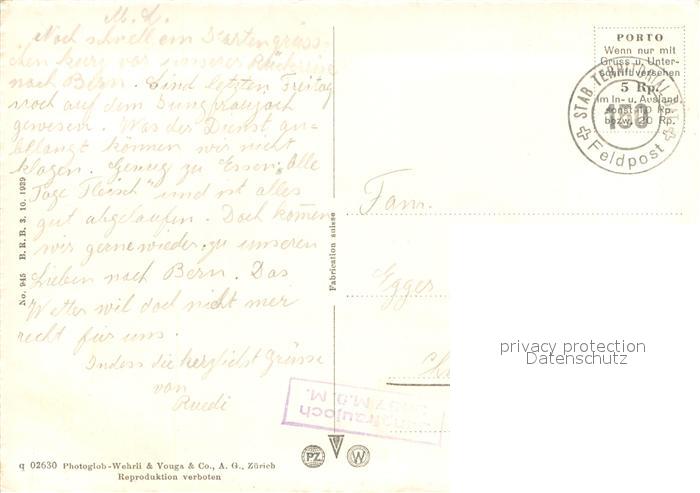 M. L.
Noch schnell ein Kartengrüss-
chen kurz vor unserer Rückreise
nach Bern. Sind letzten Freitag
noch auf dem Jungfraujoch
gewesen. Was der Dienst an-
bllangt können wir nicht
klagen. Genug zu Essen "Alle
Tage Fleisch" und ist alles
gut abgelaufen. Doch kommen
wir gerne wieder zu unseren
Lieben nach Bern. Das
Wetter wil doch nicht mer
recht für uns.
Indess die herzlichst Grüsse
von
Ruedi
No. 945 B.R.B. 3. 10. 1939
q 02630 Photoglob-Wehrli & Vouga & Co., A. G., Zürich
Reproduktion verboten
Fabrication suisse
PORTO
Wenn nur mit
Gruss u. Unter-
schrift versehen
5 Rp.
im In- u. Ausland,
sonst 10 Rp.
bzw. 20 Rp.
STAB TERRITORIAL
Feldpost
Fam.
Egger
privacy protection
Datenschutz
Jungfraujoch
3457 M.ü.M.
PZ
W